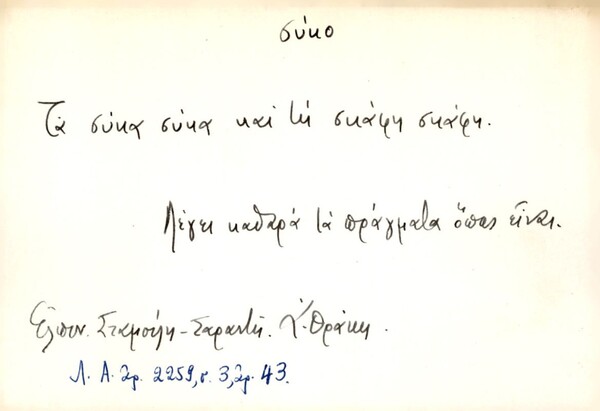 σύκο
Τὰ σύκα σύκα καὶ τὴ σκάφη σκάφη.
Λέγει καθαρά τὰ πράγματα ὅπως εἶναι.
Ἐλπιν. Σταμούλη-Σαραντῆ. Ἀ. Θράκη.
Λ. Α. ἀρ. 2259, σ. 3, ἀρ. 43.